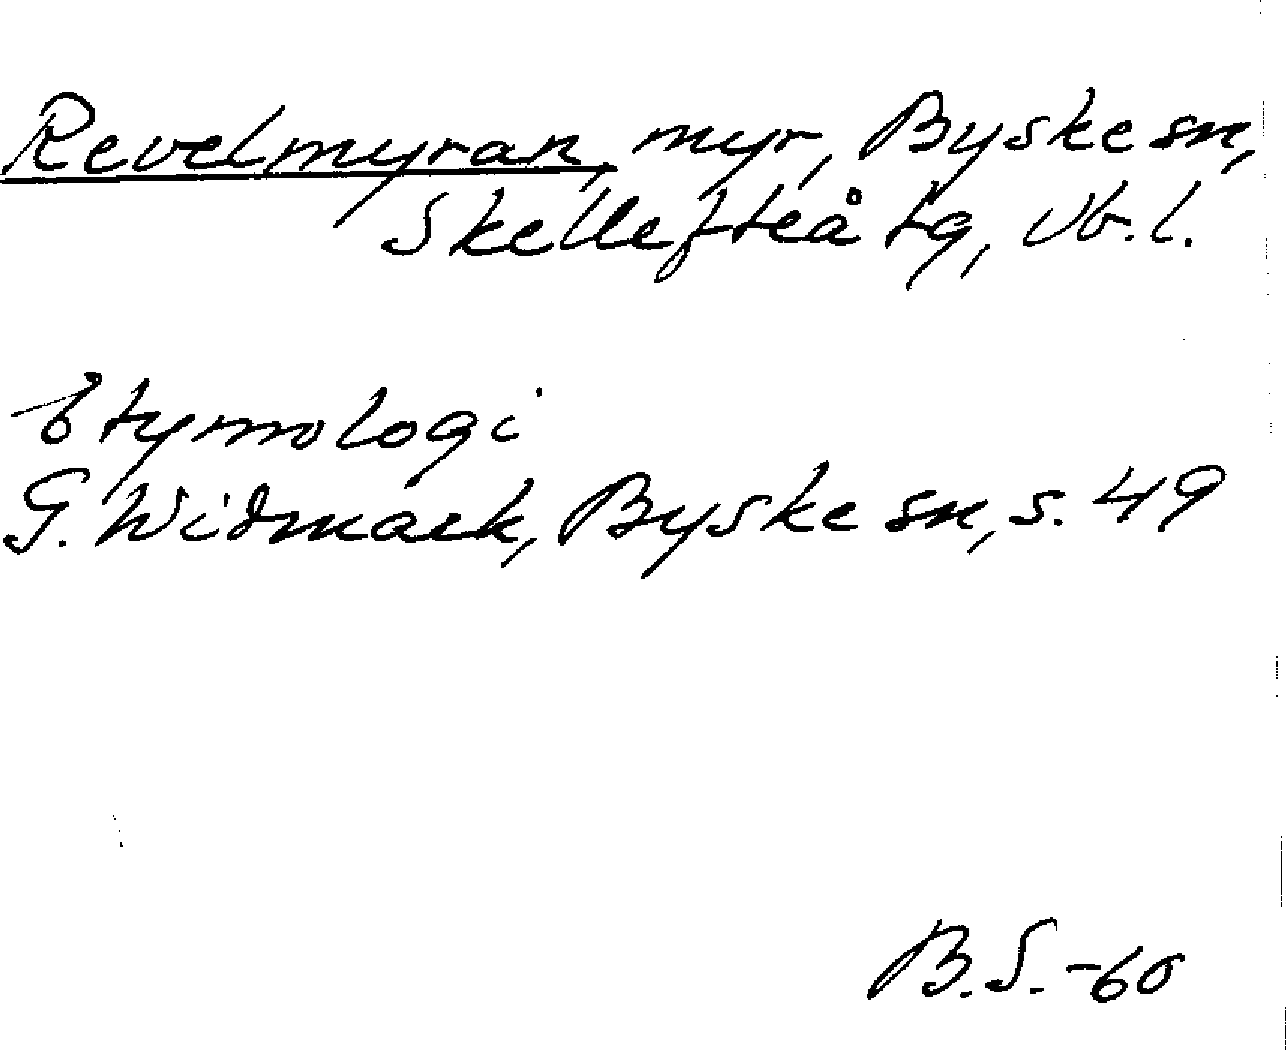 Revelmyran, myr, Byske sn,
Skellefteå tg, Vb. l.
Etymologi
G. Widmark, Byske sn, s. 49
B.S. -60